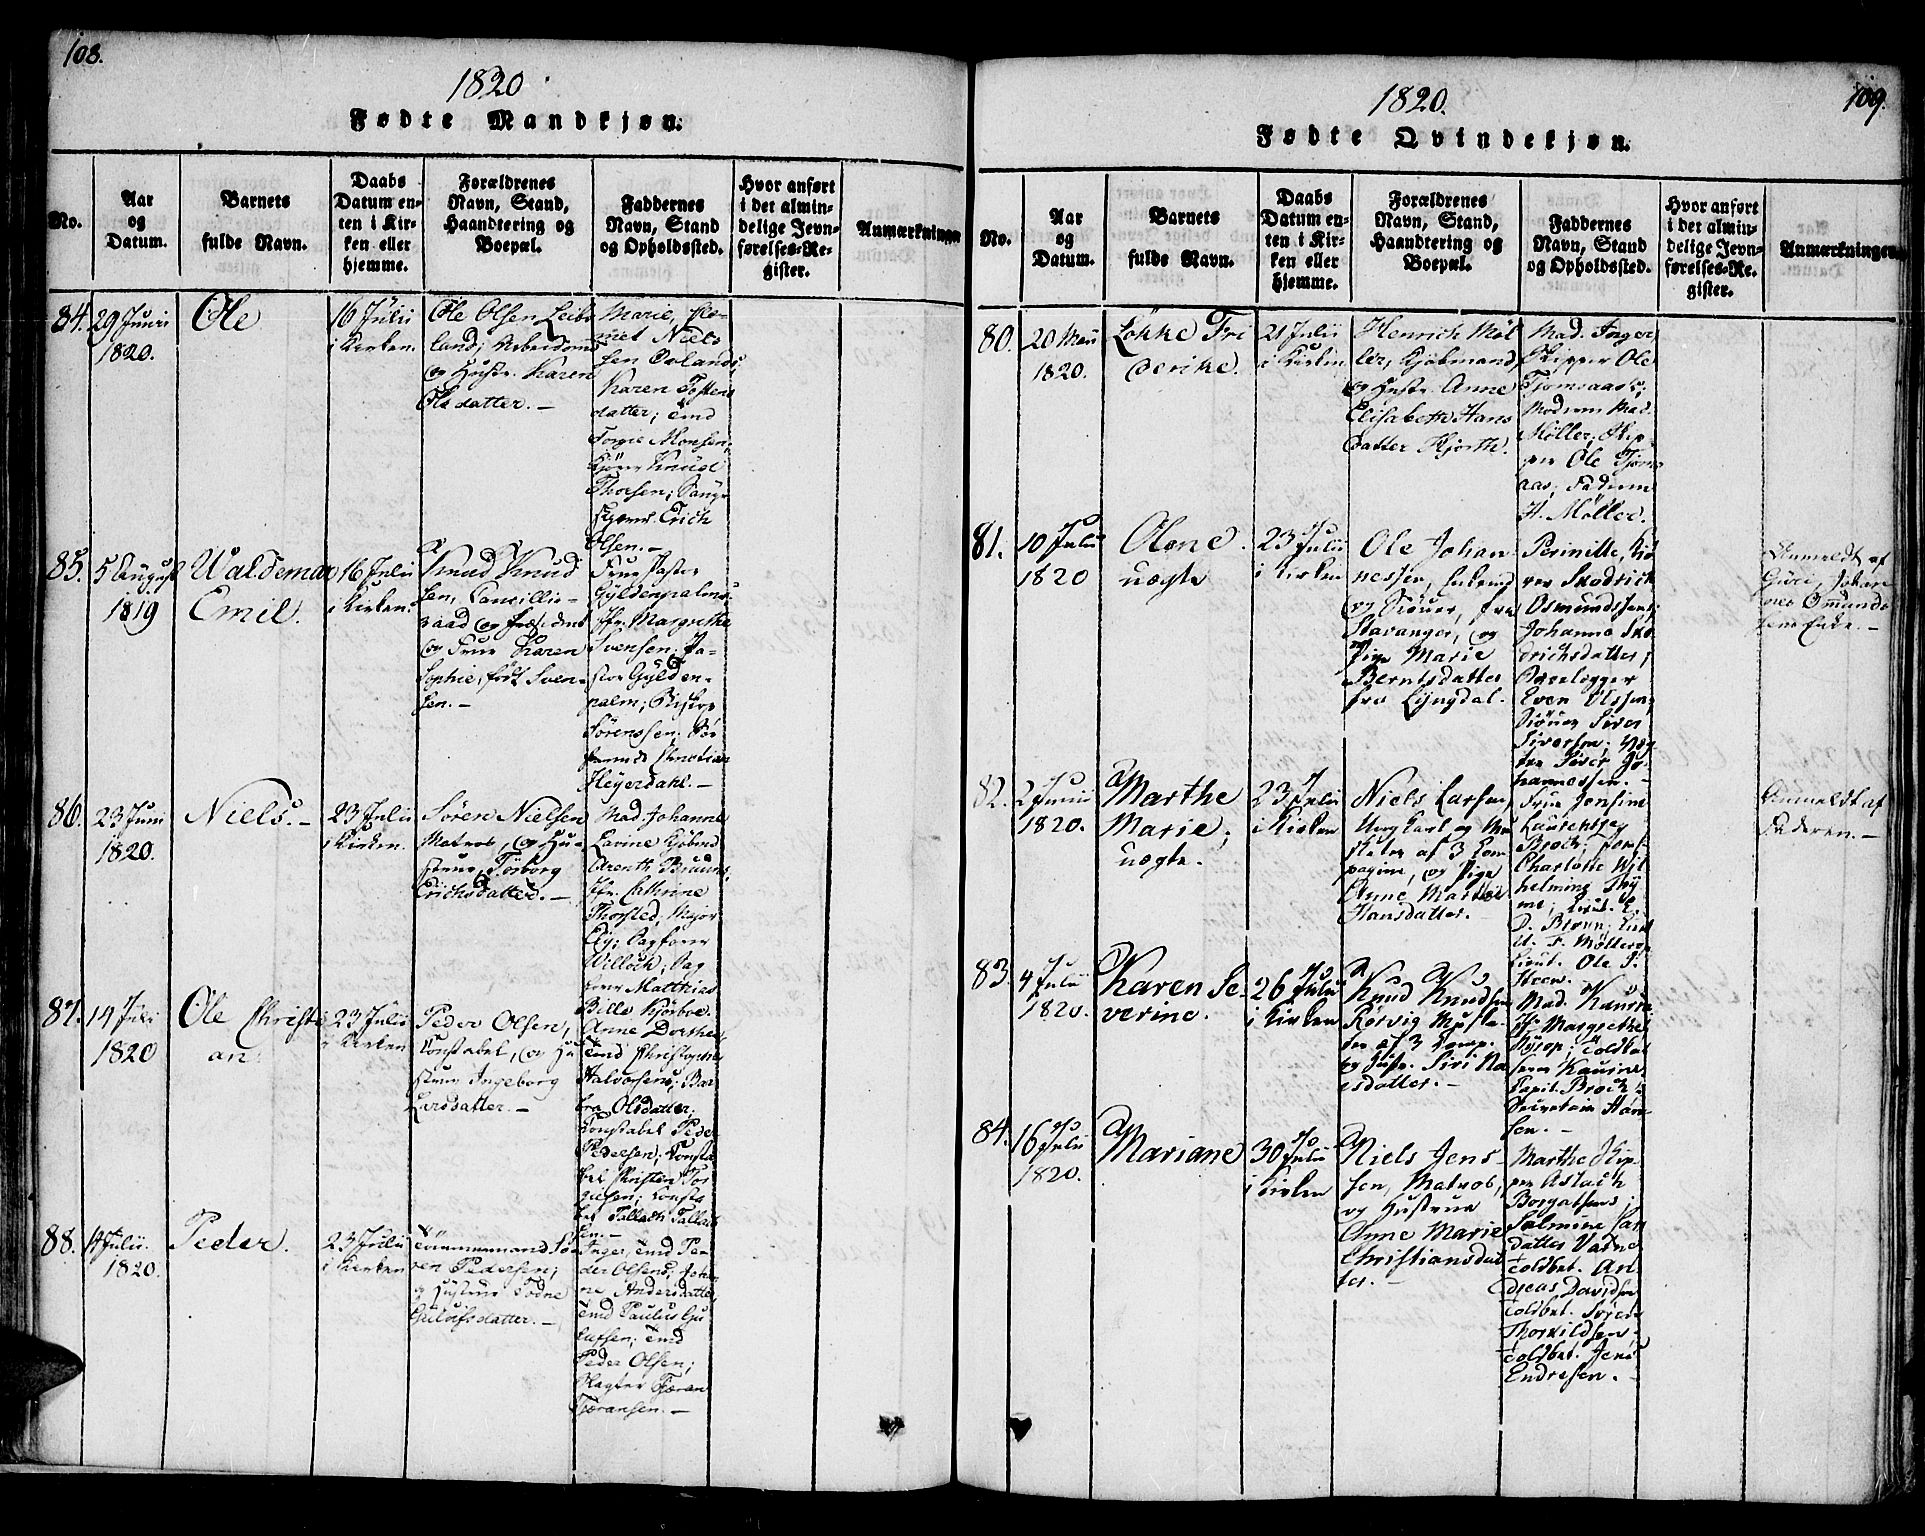 108.
1820
Fødte Mandkjøn.
No.
Aar
og
Datum.
Barnets
fulde Navn.
Daabs
Datum en-
ten i Kir-
ken eller
hjemme.
Forældrenes
Navn, Stand,
Haandtering og
Boepæl.
Faddernes
Navn, Stand
og Opholdssted.
Hvor anført
i det almin-
delige Jevn-
førelses-Re-
gister.
Anmærkninger
84.
29 Junii
1820.
Ole
16 Julii
i Kirken.
Ole Olsen Leib
land; Arbeidsmd
og Hustr. Karen
Ols datter. –
Marie,
Niels
sen
Karen Tostens
datter;
Monsen;
Knud
Thorsen;
Erich
Olsen. –
85.
5 August
1819
Waldemar
Emil.
16 Julii
i Kirken.
Knud Knud
sen, Cancellie-
raad og
og Frue Karen
Sophie, født Sven-
sen. –
Frue Pastor
Gyldenpalm;
Jfr. Margrethe
Svensen; Pa-
stor Gylden-
palm; BisKop
Sörenssen;
Christian
Heyerdahl. –
86.
23 Juni
1820.
Niels. –
23 Julii
i Kirken.
Sören Nielsen
Matros, og Hu-
strue Tórborg
Erichsdatter. –
Mad. Johanne
Lavine Kjöbmd
Arenth Bruuns;
Jfr. Cathrine
Thorsted; Major
Willoch;
Matthias
Bille Kjörboe.
87.
14 Juli
1820
Ole Christi
an.
23 Julii
i Kirken
Peder Olsen,
Konstabel, og Hu
strue Ingeborg
Larsdatter. –
Anne Dorthea,
Christopher
Halvorsens; Bar
bra Olsdatter;
Konstabel Peder
Pedersen; Konsta
bel Christen Tor
giersen; Konsta
bel Tallach Tallach
sen. –
88.
14 Julii.
1820.
Peder.
23 Julii
i Kirken
Tömmermand Sø-
ren Pedersen;
og Hustrue Todne
Gulovsdatter. –
Inger, Tmd Pe-
der Olsens; Johan
ne Andersdatter,
Tmd Paulus Gu
lufsen; Tmd
Peder Olsen;
Slagter Tjeran
Tjeransen. –
109.
1820.
Fødte Qvindekjøn.
No.
Aar
og
Datum.
Barnets
fulde Navn.
Daabs
Datum en-
ten i Kir-
ken eller
hjemme.
Forældrenes
Navn, Stand,
Haandtering og
Boepæl.
Faddernes
Navn, Stand
og Opholdssted.
Hvor anført
i det almin-
delige Jevn-
førelses-Re-
gister.
Anmærkninger
80.
20 Maii
1820.
Løkke Fri
derike.
21 Julii
i Kirken
Henrich Møl
ler, Kjøbmand,
og Hustr. Anne
Elisabeth Hans
datter Hjorth.
Mad. Inger,
Skipper Ole
Tjomsaas;
Modrem Mad.
Møller; Skip-
per Ole Tjoms
aas; Faderen
H. Møller.
81.
10 Julii
1820
Olene.
uægte
23 Julii
i Kirken
Ole Johan-
nessen,
og Siöuer, fra
Stavanger, og
Pige Marie
Berntsdatter
fra Lyngdal.
Pernille,
Skodrich
Osmundssens;
Johanne Sko
drichsdatter;
Even Olssen;
Siöuer Siver
Siversen;
Siver Jo-
hannessen. –
Anmeldt af
Johan
nes Omunds
sens Enke. –
82.
2 Junii
1820.
Marthe
Marie,
uægte.
23 Julii
i Kirken
Niels Larsen,
Ungkarl og Mu
sketer af 3 Com
pagnie, og Pige
Anne Marthe
Hansdatter. –
Frue Jensine
Laurentze
Broch; Jomf.
Charlotte Wil
helmine Thy
me; Lieut. E.
D. Brønn; Lieut
U. F. Møller og
Lieut. Ole T.
Steen.
Anmeldt af
Faderen. –
83.
4 Julii
1820.
Karen Se-
verine.
26 Julii
i Kirken
Knud Knudsen
Rørvig Muske-
ter af 3 Comp.
og Hustr. Siri
sdatter. –
Mad. Kaurin
Jfr. Margrethe
Hysop; Toldbet
Kaurin;
Capit. Broch &
Secretair Han-
sen. –
84.
16 Julii
1820.
Mariane
30 Julii
i Kirken
Niels Jens-
sen, Matros,
og Hustrue
Anne Marie
Christiansdat
ter. –
Marthe Skip-
per Aslach
Borgalsens;
Salmine Lars
datter Vatne
Toldbet. An
dreas Davidsen
Toldbet. Sören
Thorkildsen,
Toldbet. Jens
Endresen. –